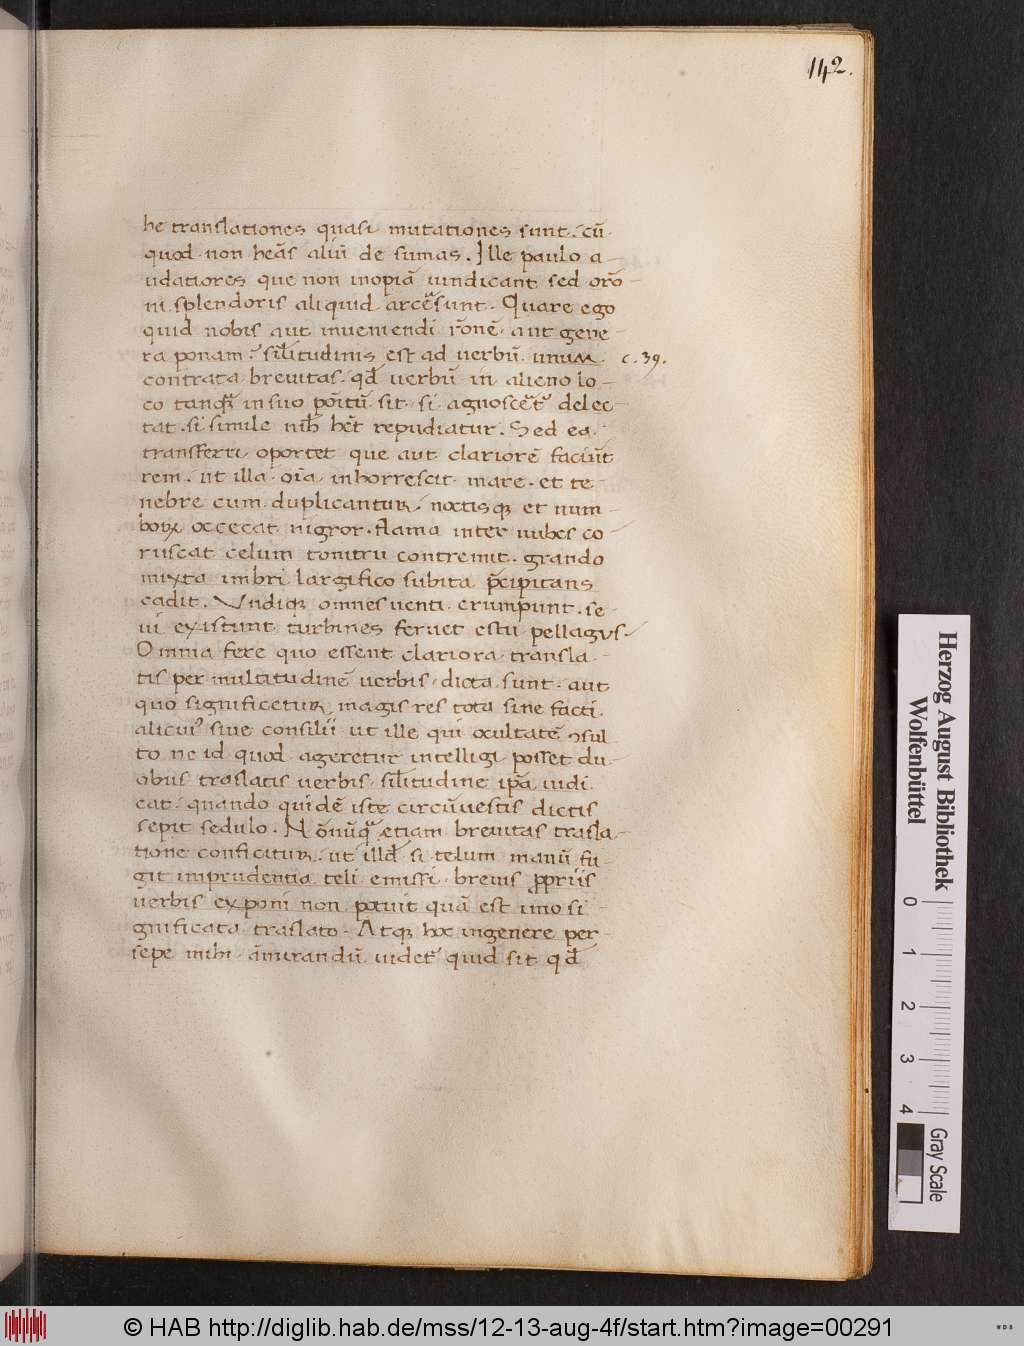 142.
he translationes quasi mutationes sunt. cū
quod non heās aliū de sumas. Ille paulo a-
udatiores que non inopiā uindicant sed orō-
ni splendoris aliquid arcesunt. Quare ego
quid nobis aut inueniendi rōne aut gene-
ra ponam? similitudinis est ad uerbū unum
c. 39.
contrata breuitas. qđ uerbū in alieno lo-
co tanq̃ in suo poītū sit. si agnoscet̃ delec-
tat. si simile nih̃ het̃ repudiatur. Sed ea
transferri oportet que aut clariorē faciūt
rem. ut illa oīa inhorrescit mare. et te-
nebre cum duplicantur. noctisq; et num-
boꝝ occecat nigror. flama inter nubes co-
ruscat celum tonitru contremit. grando
mixta imbri largifico subita p̄cipitans
cadit. Vndiq; omnes uenti erumpunt. se-
ui existunt turbines feruet estu pellagus
Omnia fere quo essent clariora transla-
tis per multitudinē uerbis dicta sunt. aut
quo significetur magis res tota siue facti
alicui' siue consilii ut ille qui ocultatē ꝯsul
to ne id quod ageretur intelligi posset du-
obus traslatis uerbis similitudine ip̄a iudi
cat. quando quidē iste circūuestis dictis
sepit sedulo. Nōnūq̃ etiam breuitas trasla-
tione conficitur. ut illđ si telum manū fu-
git imprudentia teli emissi breuis ꝓpriis
uerbis exponi non potuit quā est uno si-
gnificata traslato. Atq; hoc in genere per-
sepe mihi āmirandū uidet̃ quid sit qđ
Herzog August Bibliothek
Wolfenbüttel
0 1 2 3 4
Gray Scale
© HAB http://diglib.hab.de/mss/12-13-aug-4f/start.htm?image=00291